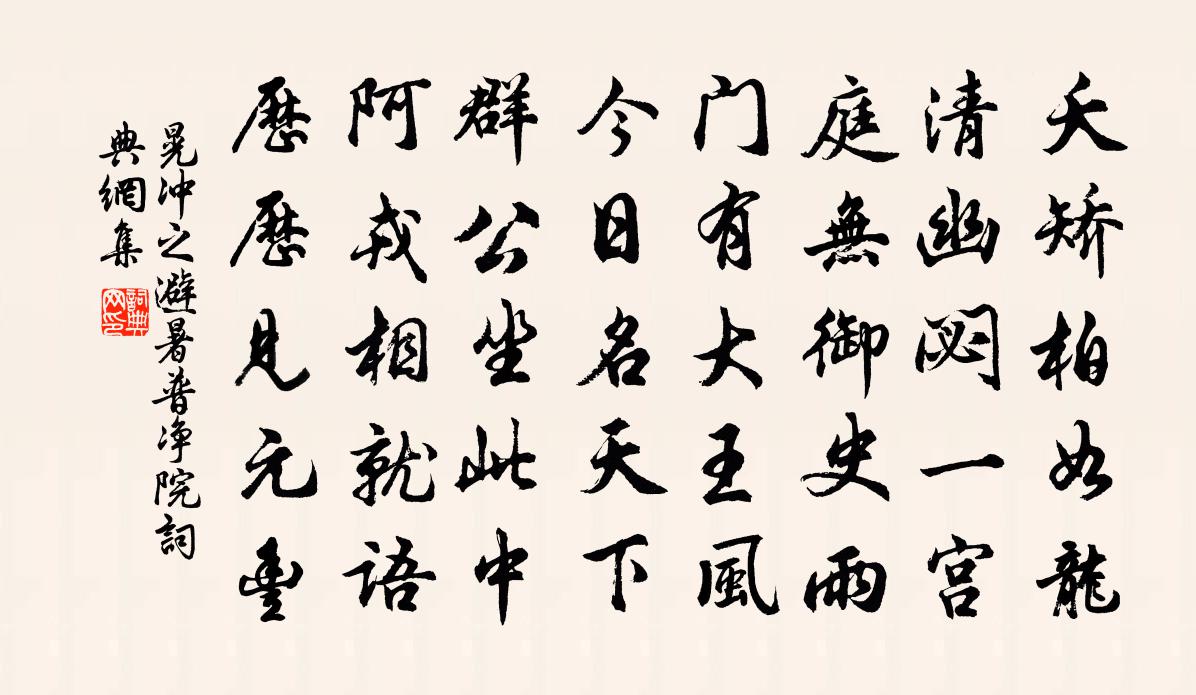 夭矯柏如龍
清幽閟一宫
庭無御史雨
门有大王風
今日名天下
群公坐此中
阿戎相就語
歷歷見元豐
晁冲之避暑普净院詞
典網集
詞典
网印